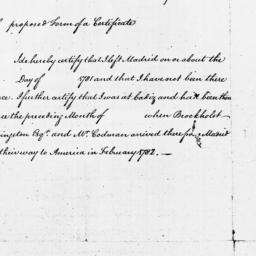 proposed Form of a Certificate
I do hereby certify that I left Madrid on or about the
Day of 1781 and that I have not been there
ce. I further certify that I was at Cadiz and had been there
the preceeding Month of when Brockholst
ingston Esqr. and Mr. Codman arrived there from Madrid
their way to America in February 1782. —